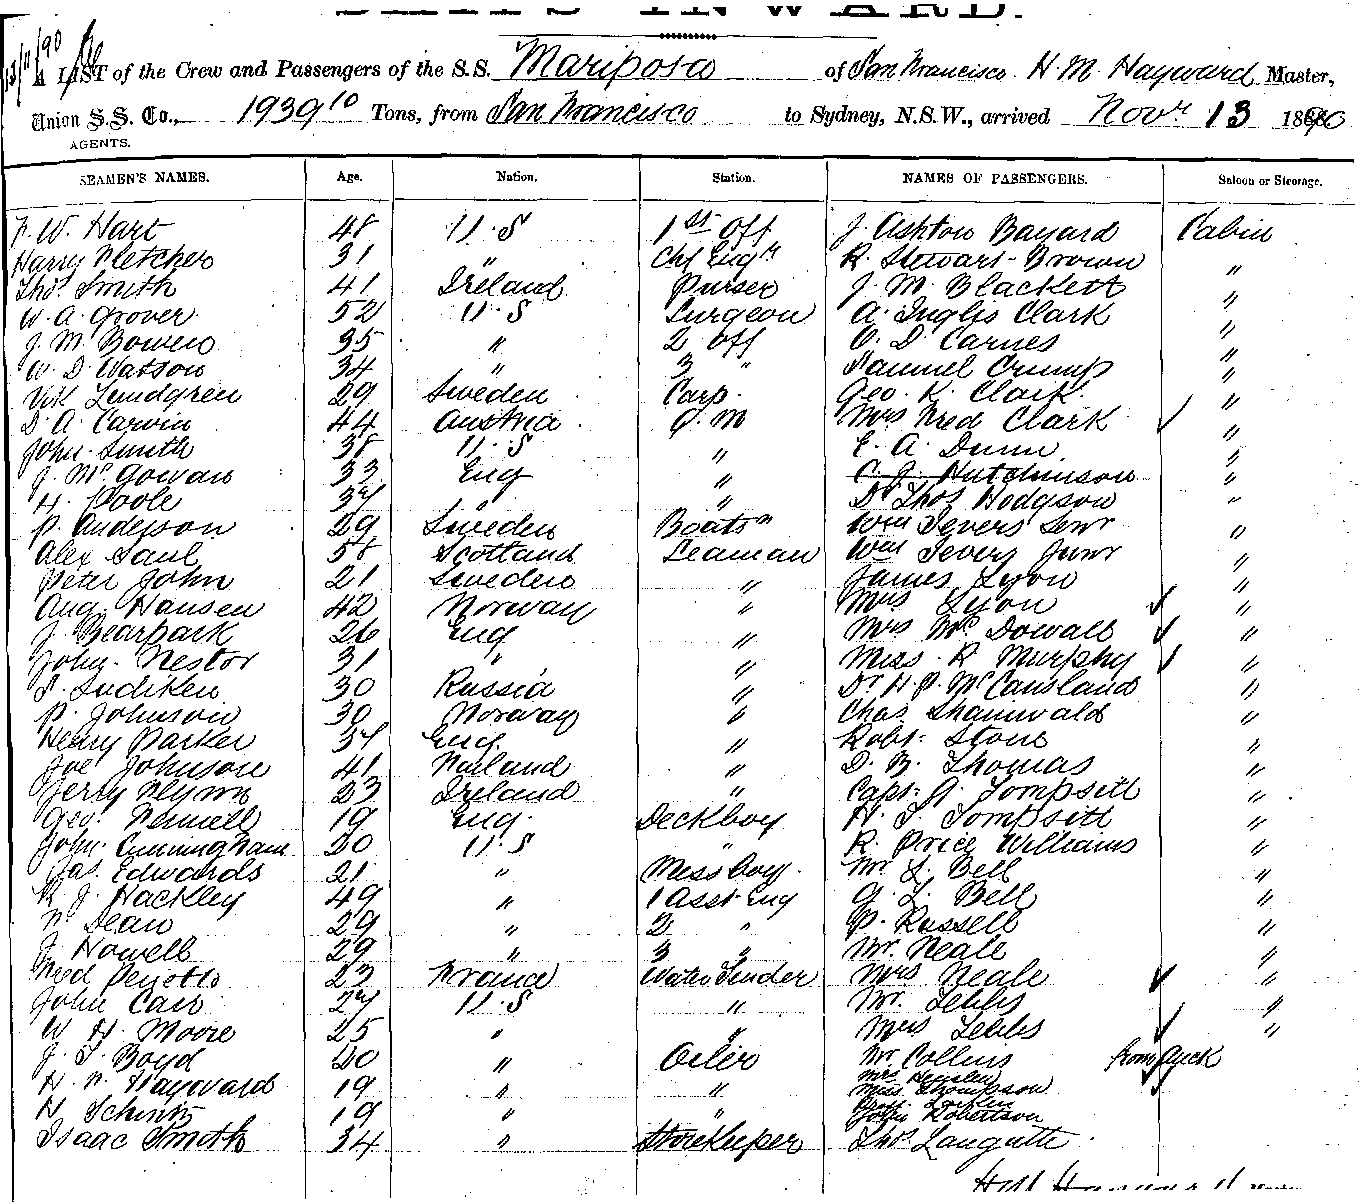 SHIPS INWARD.
13/11/90
A LIST of the Crew and Passengers of the S.S. Mariposa of San Francisco H. M. Hayward Master,
Union S.S. Co., 1939 10 Tons, from San Francisco to Sydney, N.S.W., arrived Novr 13 1890
AGENTS.
SEAMEN'S NAMES. Age. Nation. Station. NAMES OF PASSENGERS. Saloon or Steerage.
F. W. Hart 48 U.S 1st Off J. Ashton Bayard Cabin
Harry Fletcher 31 " Chf Engr R. Stewart-Brown "
Thos. Smith 41 Ireland Purser J. M. Blackett "
W. A. Grover 52 U.S Surgeon A. Inglis Clark "
J. M. Bowen 35 " 2 Off O. D. Carnes "
W. D. Watson 34 " 3 " Samuel Crump "
Vik Lundgren 29 Sweden Carp. Geo. K. Clark "
D. A. Carvin 44 Austria Q.M Mrs Fred Clark "
John Smith 38 U.S " E. A. Dunn "
J. McGowan 33 Eng " C. J. Hutchinson "
H. Poole 37 " " Dr Thos Hodgson "
P. Anderson 29 Sweden Boatsn Wm Severs Senr "
Alex Saul 58 Scotland Seaman Wm Severs Junr "
Peter John 21 Sweden " James Lyon "
Aug. Hansen 42 Norway " Mrs Lyon "
J. Bearpark 26 Eng " Mrs McDowall "
John Nestor 31 " " Miss R Murphy "
30 Russia " Dr H. P. McCausland "
P. Johnson 30 Norway " Chas. Shainwald "
Henry Parker 37 Eng. " Robt. Stone "
Joe Johnson 41 " D. B. Thomas "
Jerry Flynn 23 Ireland " Capt. Tompsitt "
Geo. Fennell 19 Eng. Deckboy H. T. Tompsitt "
John Cunningham 20 U.S " R. Price Williams "
Jas. Edwards 21 " Messboy Mr L. Bell "
R. J. Hackley 49 " 1 Asst Eng G. L. Bell "
F. Dean 29 " 2 " P. Russell "
J. Howell 29 " 3 " Mr. Neale "
Fred 23 France Water Tender Mrs Neale "
John Carr 27 U.S " Mr. Tebbs "
W. H. Moore 25 " " Mrs Tebbs "
J. T. Boyd 20 " Oiler Mr Collins from Auck
H. F. Hayward 19 " " Mrs Hensley
Miss Thompson
H. Schintz 19 " "
John Robertson
Isaac Smith 34 " Storekeeper Thos. Langatte